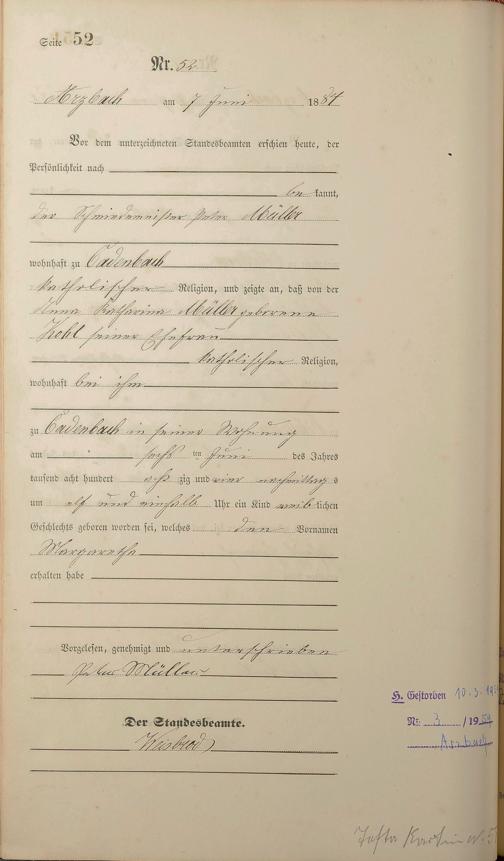 Seite 52
Nr. 52
Arzbach am 7 Juni 1884
Vor dem unterzeichneten Standesbeamten erschien heute, der
Persönlichkeit nach
be kannt,
der Schmiedmeister Peter Müller
wohnhaft zu Cadenbach
katholischer Religion, und zeigte an, daß von der
Anna Katharina Müller geborene
seiner Ehefrau
katholischer Religion,
wohnhaft bei ihm
zu Cadenbach in seiner Wohnung
am sechs ten Juni des Jahres
tausend acht hundert acht zig und vier nachmittag s
um elf und einhalb Uhr ein Kind weib lichen
Geschlechts geboren worden sei, welches den Vornamen
Margaretha
erhalten habe
Vorgelesen, genehmigt und unterschrieben
Peter Müller
Der Standesbeamte.
Weisbrod
H. Gestorben 10.3.19
Nr. 3 /19
Arzbach